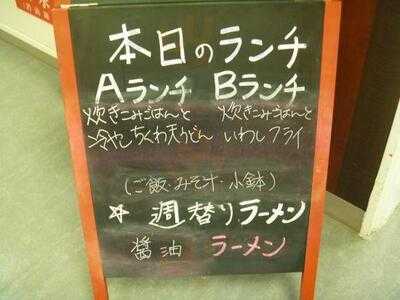 本日のランチ
Aランチ Bランチ
炊きこみごはんと 炊きこみごはんと
冷やしちくわ天うどん いわしフライ
(ご飯・みそ汁・小鉢)
☆ 週替りラーメン
醤油 ラーメン